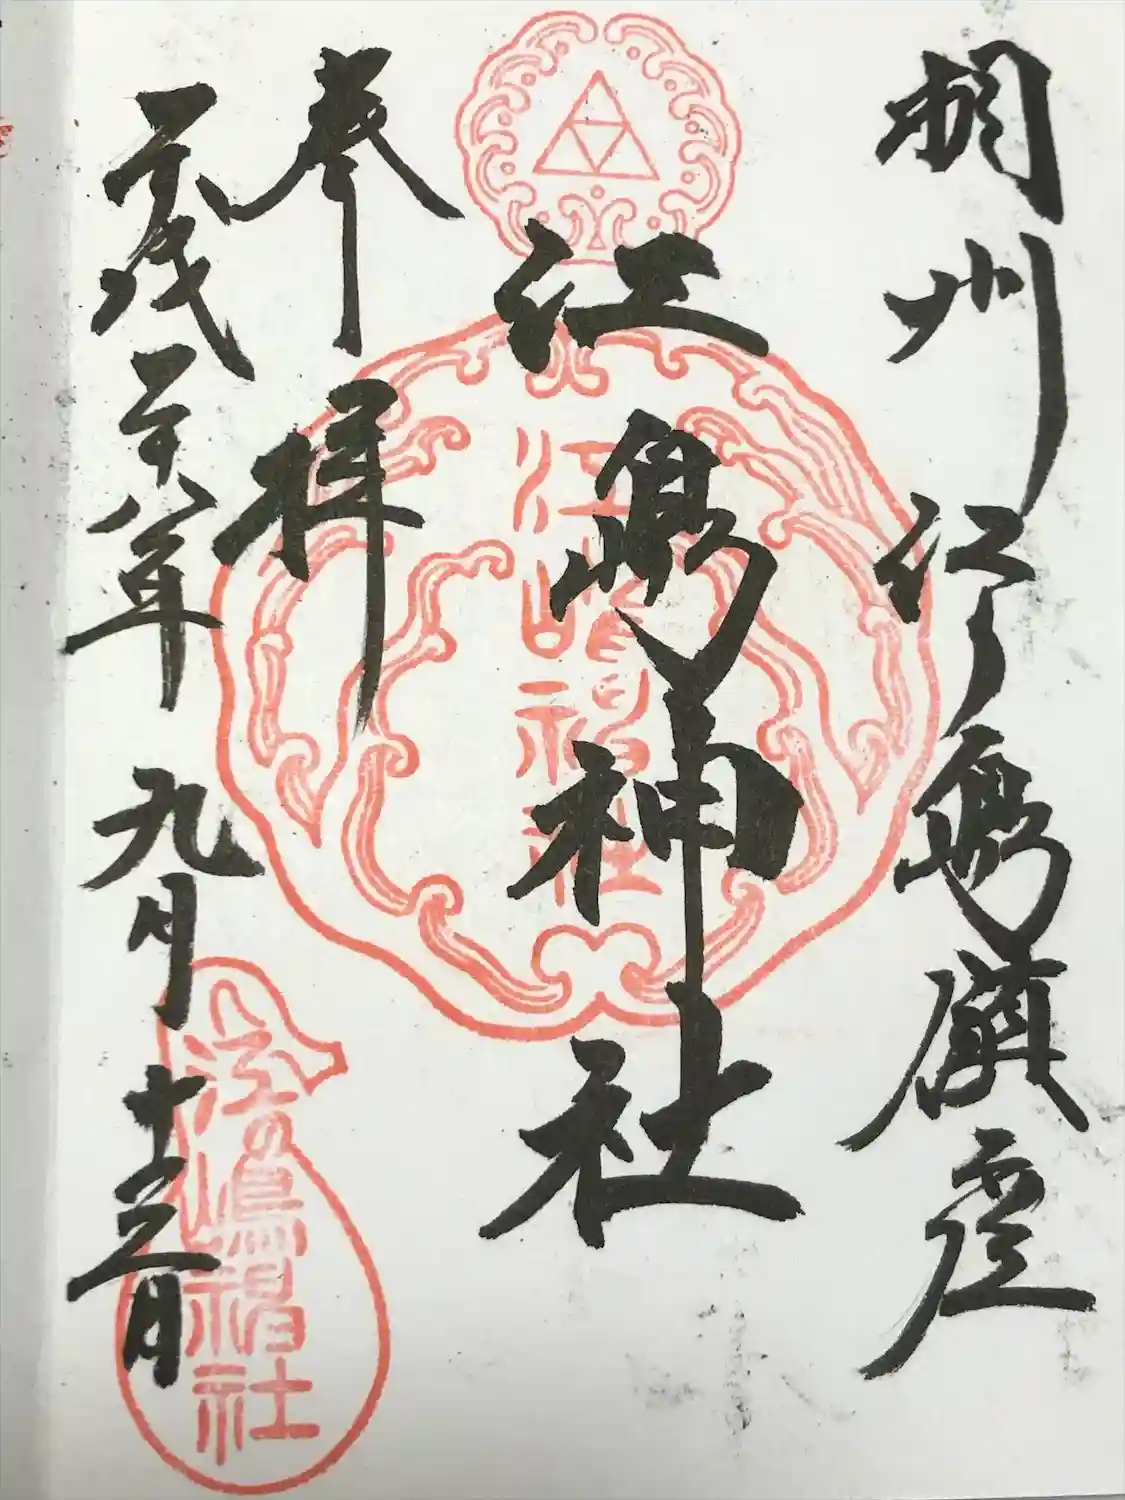 相州江ノ島鎮座
江島神社
奉拝
平成二十八年九月十五日
江島神社
江嶋神社